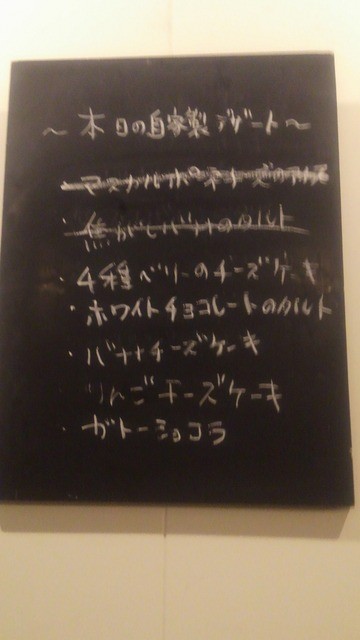 ～本日の自家製デザート～
マスカルポーネチーズのアイス
・焦がしバナナのタルト
・4種ベリーのチーズケーキ
・ホワイトチョコレートのタルト
・バナナチーズケーキ
りんごチーズケーキ
・ガトーショコラ